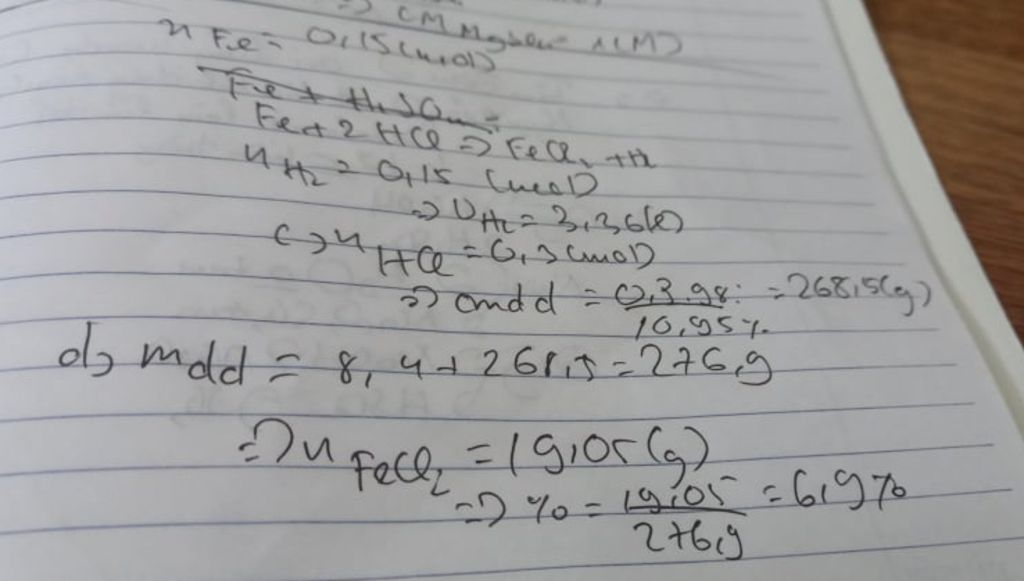 => CM
n Fe = 0,15 (mol)
Fe + H2SO4
Fe + 2 HCl => FeCl2 + H2
n H2 = 0,15 (mol)
=> VH2 = 3,36 (l)
c, n HCl = 0,3 (mol)
=> mdd = 0,3.98 / 10,95% = 268,5 (g)
d, mdd = 8,4 + 268,5 = 276,9
=> n FeCl2 = 19,05 (g)
=> % = 19,05 / 276,9 = 6,9%